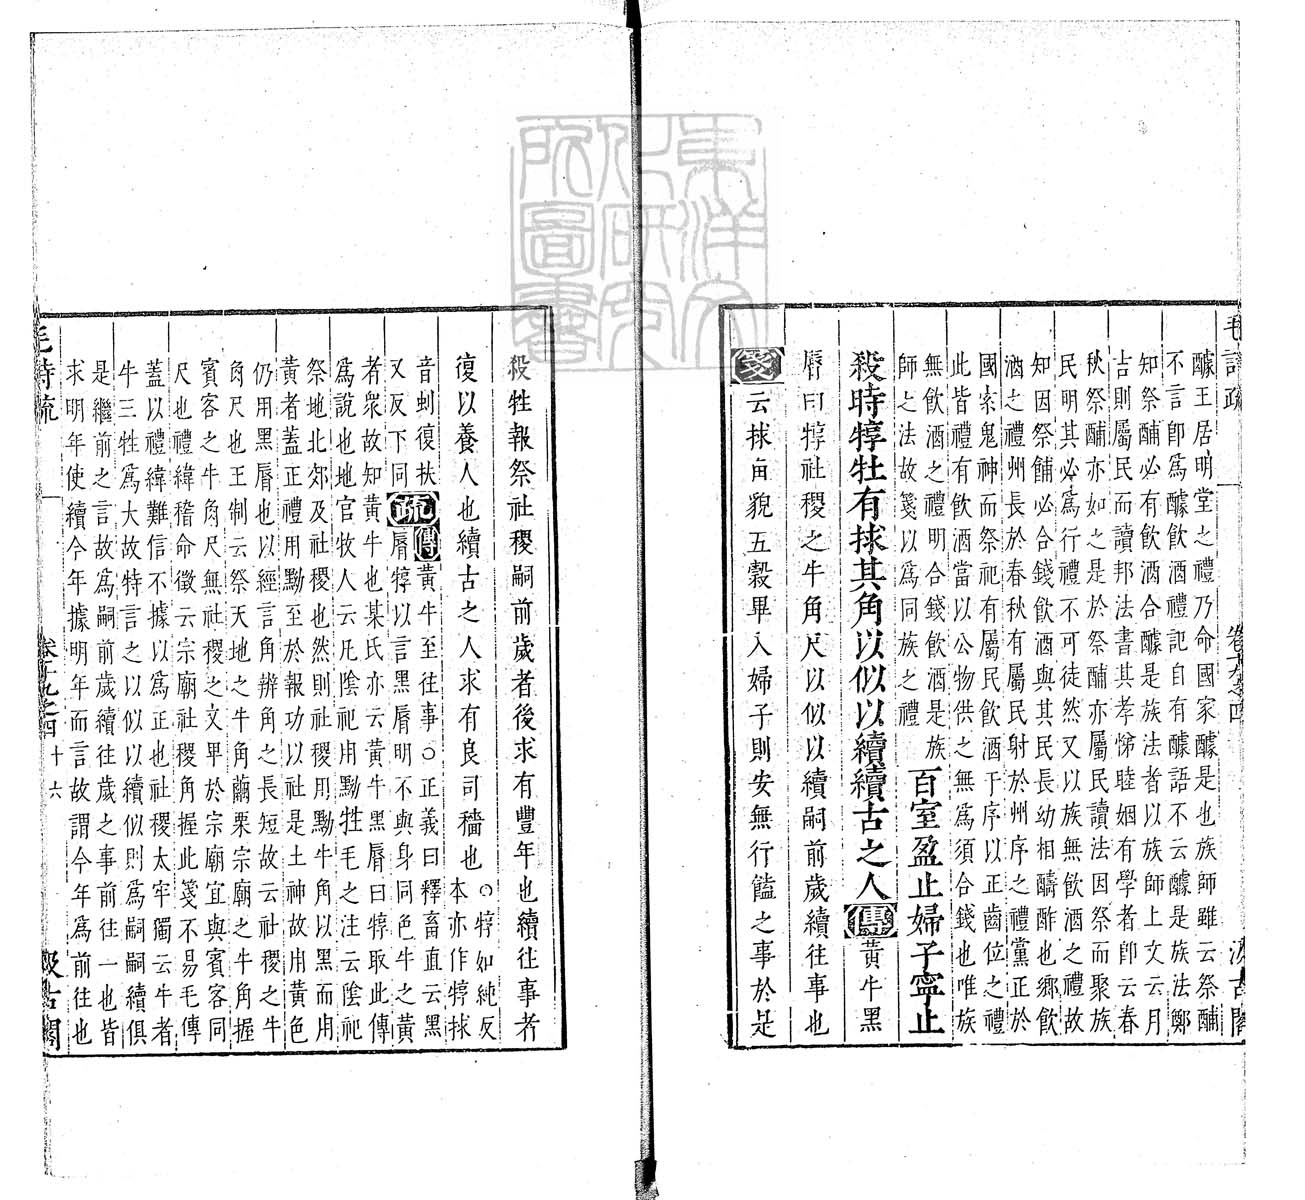 毛詩疏
卷十九之四
汲古閣
醵王居明堂之禮乃命國家醵是也族師雖云祭酺
不言卽爲醵飮酒禮記自有醵語不云醵是族法鄭
知祭酺必有飮酒合醵是族法者以族師上文云月
吉則屬民而讀邦法書其孝悌睦姻有學者卽云春
秋祭酺亦如之是於祭酺亦屬民讀法因祭而聚族
民明其必爲行禮不可徒然又以族無飮酒之禮故
知因祭酺必合錢飮酒與其民長幼相醻酢也鄉飮
酒之禮州長於春秋有屬民射於州序之禮黨正於
國索鬼神而祭祀有屬民飮酒于序以正齒位之禮
此皆禮有飮酒當以公物供之無爲須合錢也唯族
無飮酒之禮明合錢飮酒是族
師之法故箋以爲同族之禮
百室盈止婦子寧止
殺時犉牡有捄其角以似以續續古之人傳黃牛黑
脣曰犉社稷之牛角尺以似以續嗣前歲續往事也
箋云捄角貌五穀畢入婦子則安無行饁之事於是
殺牲報祭社稷嗣前歲者後求有豐年也續往事者
復以養人也續古之人求有良司穡也○犉如純反
本亦作犉捄
音虯復扶
又反下同
疏傳黃牛至往事○正義曰釋畜直云黑
脣犉以言黑脣明不與身同色牛之黃
者衆故知黃牛也某氏亦云黃牛黑脣曰犉取此傳
爲說也地官牧人云凡陰祀用黝牲毛之注云陰祀
祭地北郊及社稷也然則社稷用黝牛角以黑而用
黃者蓋正禮用黝至於報功以社是土神故用黃色
仍用黑脣也以經言角辨角之長短故云社稷之牛
角尺也王制云祭天地之牛角繭栗宗廟之牛角握
賓客之牛角尺無社稷之文卑於宗廟宜與賓客同
尺也禮緯稽命徵云宗廟社稷角握此箋不易毛傳
蓋以禮緯難信不據以爲正也社稷太牢獨云牛者
牛三牲爲大故特言之以似以續似則爲嗣嗣續俱
是繼前之言故爲嗣前歲續往歲之事前往一也皆
求明年使續今年據明年而言故謂今年爲前往也
毛詩疏
卷十九之四
十六
汲古閣